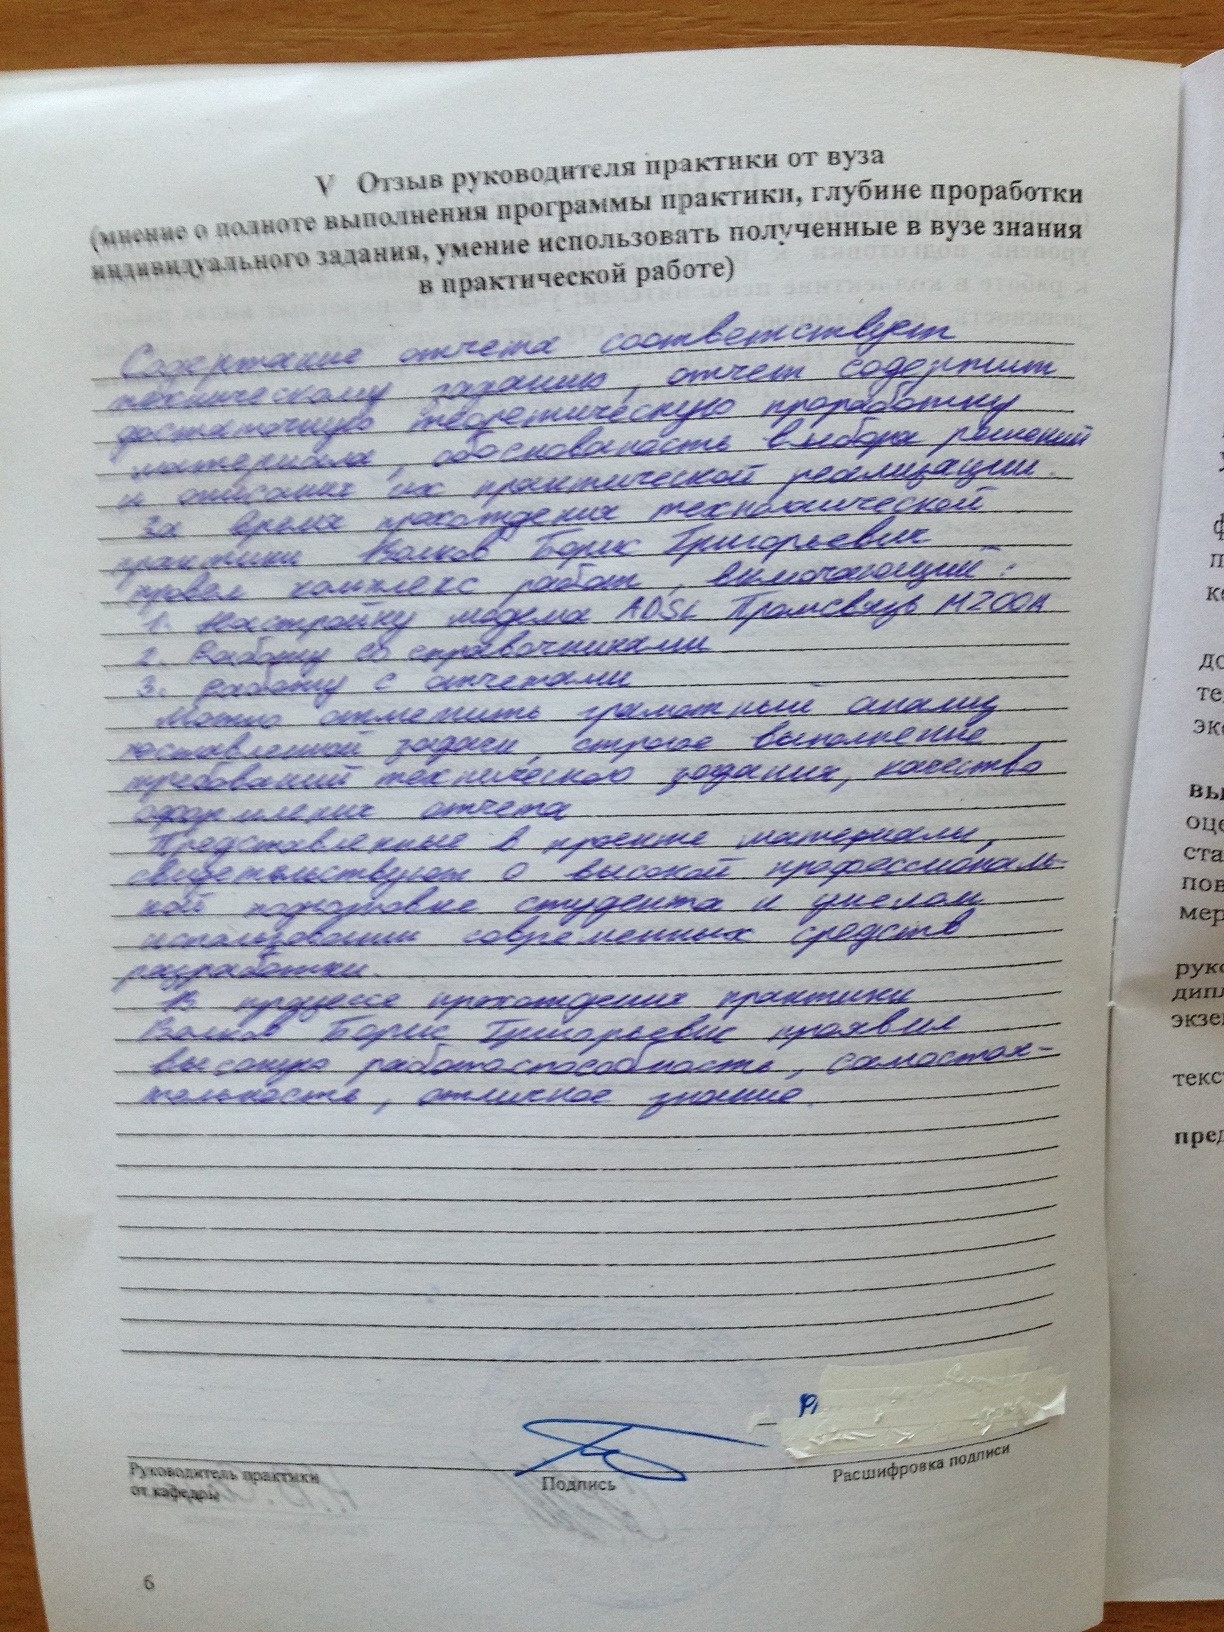 V Отзыв руководителя практики от вуза
(мнение о полноте выполнения программы практики, глубине проработки
индивидуального задания, умение использовать полученные в вузе знания
в практической работе)
Содержание отчета соответствует
техническому заданию, отчет содержит
достаточную теоретическую проработку
материала, обоснованость выбора решений
и описания их практической реализации.
За время прохождения технологической
практики Волков Борис Григорьевич
провел комплекс работ, включающий:
1. Настройку модема ADSL Промсвязь М200А
2. Работу со справочниками
3. Работу с отчетами
Можно отметить грамотный анализ
поставленной задачи, строгое выполнение
требований технического задания, качество
оформления отчета
Представленные в проекте материалы,
свидетельствуют о высокой профессиональ-
ной подготовке студента и умелом
использовании современных средств
разработки.
В процессе прохождения практики
Волков Борис Григорьевич проявил
высокую работоспособность, самостоя-
тельность, отличное знание
Руководитель практики
от кафедры
Подпись
Расшифровка подписи
6
ф
п
ке
до
те
эко
вы
оце
ста
пов
мер
руко
дипл
экзе
текс
пред